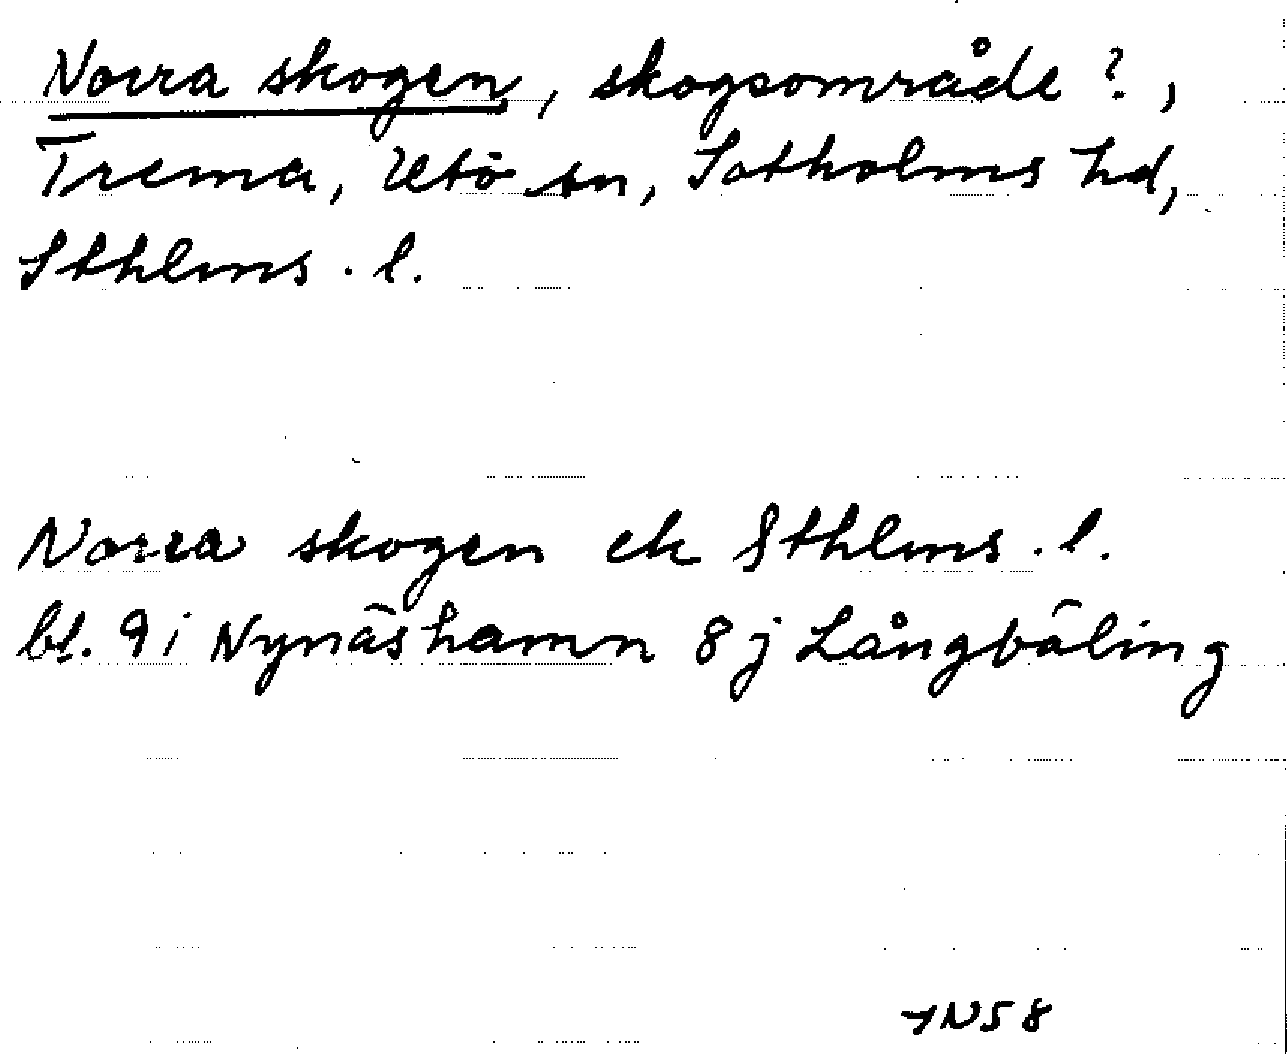 Norra skogen, skogsområde?,
Trema, Utö sn, Sotholms hd,
Sthlms. l.
Norra skogen ek Sthlms. l.
bl. 9i Nynäshamn 8j Långbäling